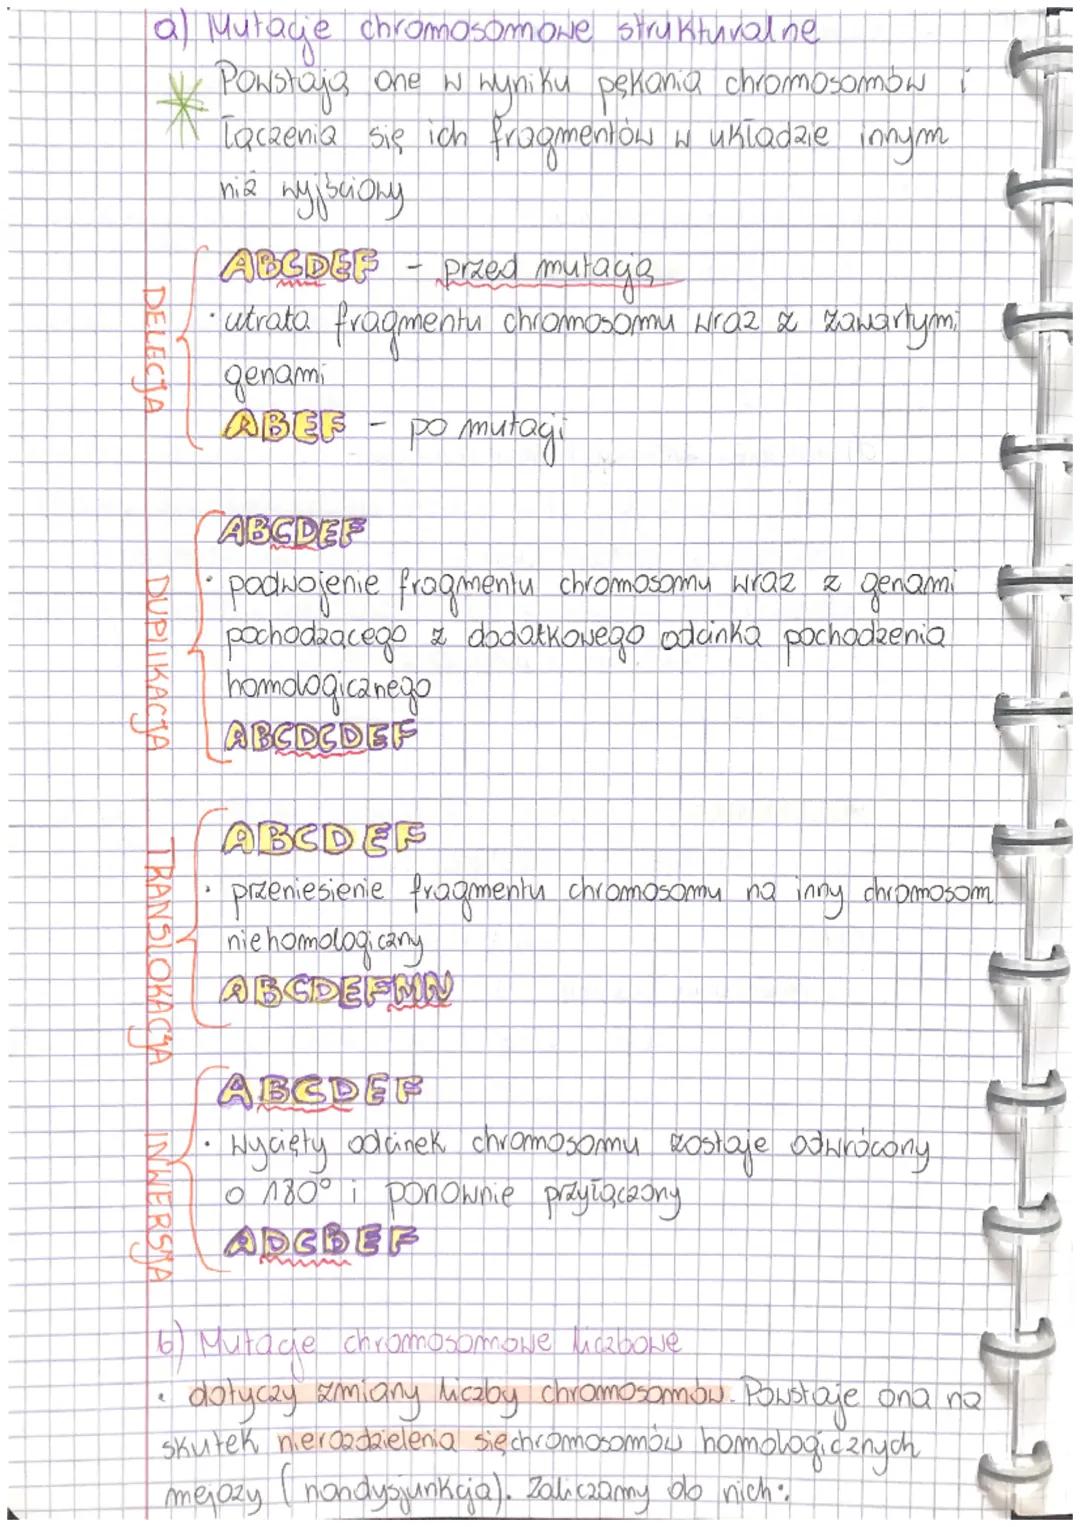 a) Mutacje chromosomowe strukturalne
Powstają one w wyniku pękania chromosomów i
łączenia się ich fragmentów w układzie innym
niż wyjściowy
DELECJA
ABCDEF - przed mutacją
• utrata fragmentu chromosomu wraz z zawartymi
genami
ABEF - po mutacji
DUPLIKACJA
ABCDEF
• podwojenie fragmentu chromosomu wraz z genami
pochodzącego z dodatkowego odcinka pochodzenia
homologicznego
ABCDCDEF
TRANSLOKACJA
ABCDEF
• przeniesienie fragmentu chromosomu na inny chromosom
niehomologiczny
ABCDEFMN
INWERSJA
ABCDEF
• wycięty odcinek chromosomu zostaje odwrócony
o 180° i ponownie przyłączony
ADCBEF
b) Mutacje chromosomowe liczbowe
• dotyczy zmiany liczby chromosomów. Powstaje ona na
skutek nierozdzielenia się chromosomów homologicznych
mejozy (nondysjunkcja). Zaliczamy do nich: